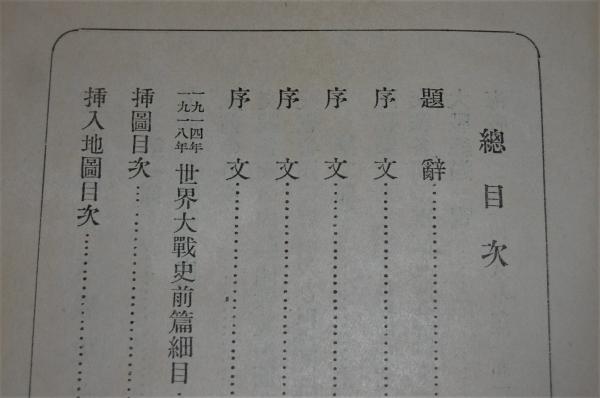 總目次
題辭
序文
序文
序文
序文
一九一四年
一九一八年 世界大戰史前篇細目
挿圖目次
挿入地圖目次